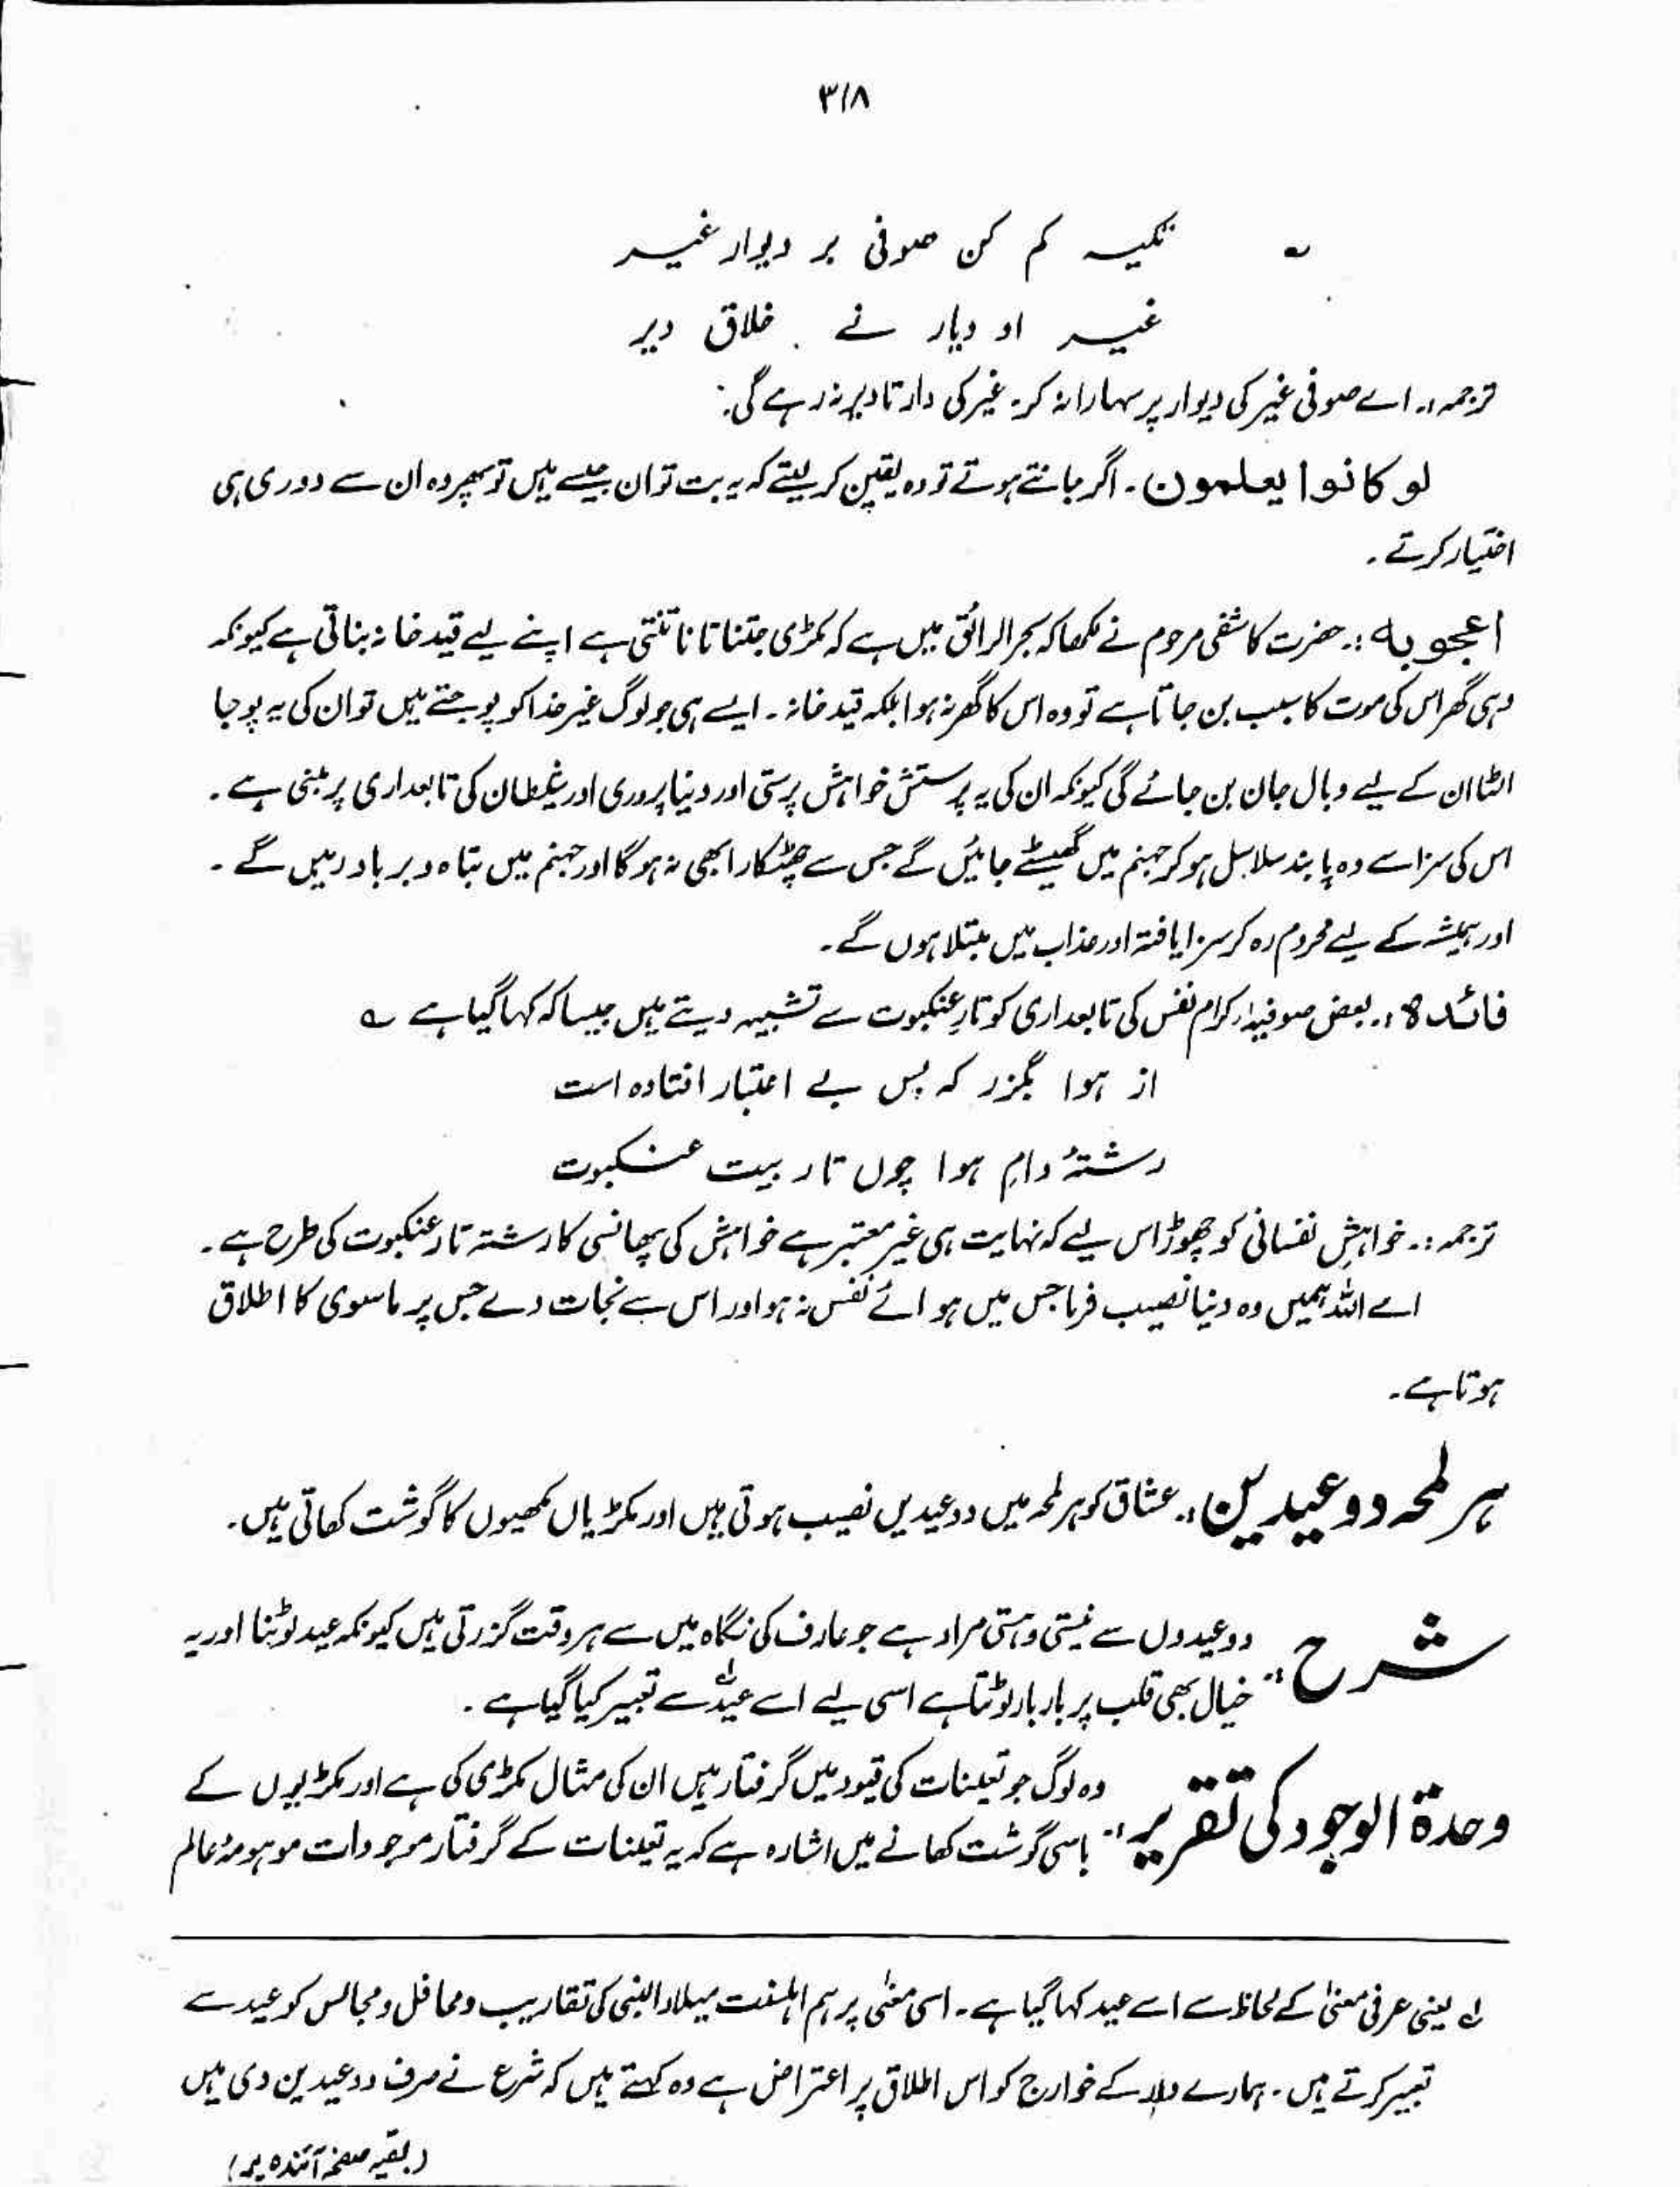 ۳۱۸
؎ تکیہ کم کن صوفی بر دیوار غیر
غیر او دیار نے خلاق دیر
ترجمہ:۔ اے صوفی غیر کی دیوار پر سہارا نہ کر۔ غیر کی دار تا دیر نہ رہے گی:
لو کانوا یعلمون۔ اگر جانتے ہوتے تو وہ یقین کر لیتے کہ یہ بت تو ان جیسے ہیں تو پھر وہ ان سے دوری ہی
اختیار کرتے۔
اعجوبہ:۔ حضرت کاشفی مرحوم نے لکھا کہ بحر الرائق میں ہے کہ مکڑی جتنا تانا تنتی ہے اپنے لیے قید خانہ بناتی ہے کیونکہ
وہی گھر اس کی موت کا سبب بن جاتا ہے تو وہ اس کا گھر نہ ہوا بلکہ قید خانہ۔ ایسے ہی جو لوگ غیر خدا کو پوجتے ہیں تو ان کی یہ پوجا
الٹا ان کے لیے وبال جان بن جائے گی کیونکہ ان کی یہ پرستش خواہش پرستی اور دنیا پروری اور شیطان کی تابعداری پر مبنی ہے۔
اس کی سزا سے وہ پابند سلاسل ہو کر جہنم میں گھسیٹے جائیں گے جس سے چھٹکارا بھی نہ ہو گا اور جہنم میں تباہ و برباد رہیں گے۔
اور ہمیشہ کے لیے محروم رہ کر سزا یافتہ اور عذاب میں مبتلا ہوں گے۔
فائدہ:۔ بعض صوفیہ کرام نفس کی تابعداری کو تارِ عنکبوت سے تشبیہہ دیتے ہیں جیسا کہ کہا گیا ہے ؎
از ہوا بگزر کہ بس بے اعتبار افتادہ است
رشتۂ دامِ ہوا چوں تار بیت عنکبوت
ترجمہ:۔ خواہشِ نفسانی کو چھوڑ اس لیے کہ نہایت ہی غیر معتبر ہے خواہش کی پھانسی کا رشتہ تار عنکبوت کی طرح ہے۔
اے اللہ ہمیں وہ دنیا نصیب فرما جس میں ہوائے نفس نہ ہو اور اس سے نجات دے جس پر ماسوی کا اطلاق
ہوتا ہے۔
ہر لمحہ دو عیدین:۔ عشاق کو ہر لمحہ میں دو عیدیں نصیب ہوتی ہیں اور مکڑیاں مکھیوں کا گوشت کھاتی ہیں۔
شرح:۔ دو عیدوں سے نیستی و ہستی مراد ہے جو عارف کی نگاہ میں سے ہر وقت گزرتی ہیں کیونکہ عید لوٹنا اور یہ
خیال بھی قلب پر بار بار لوٹتا ہے اسی لیے اسے عید؂۱ سے تعبیر کیا گیا ہے۔
وحدۃ الوجود کی تقریر:۔ وہ لوگ جو تعینات کی قیود میں گرفتار ہیں ان کی مثال مکڑی کی ہے اور مکڑیوں کے
باسی گوشت کھانے میں اشارہ ہے کہ یہ تعینات کے گرفتار موجودات موہومۂ عالم
لے یعنی عرفی معنیٰ کے لحاظ سے اسے عید کہا گیا ہے۔ اسی معنیٰ پر ہم اہلسنت میلاد النبی کی تقاریب و محافل و مجالس کو عید سے
تعبیر کرتے ہیں۔ ہمارے کے خوارج کو اس اطلاق پر اعتراض ہے وہ کہتے ہیں کہ شرع نے صرف دو عیدین دی ہیں
(بقیہ صفحہ آئندہ پر)